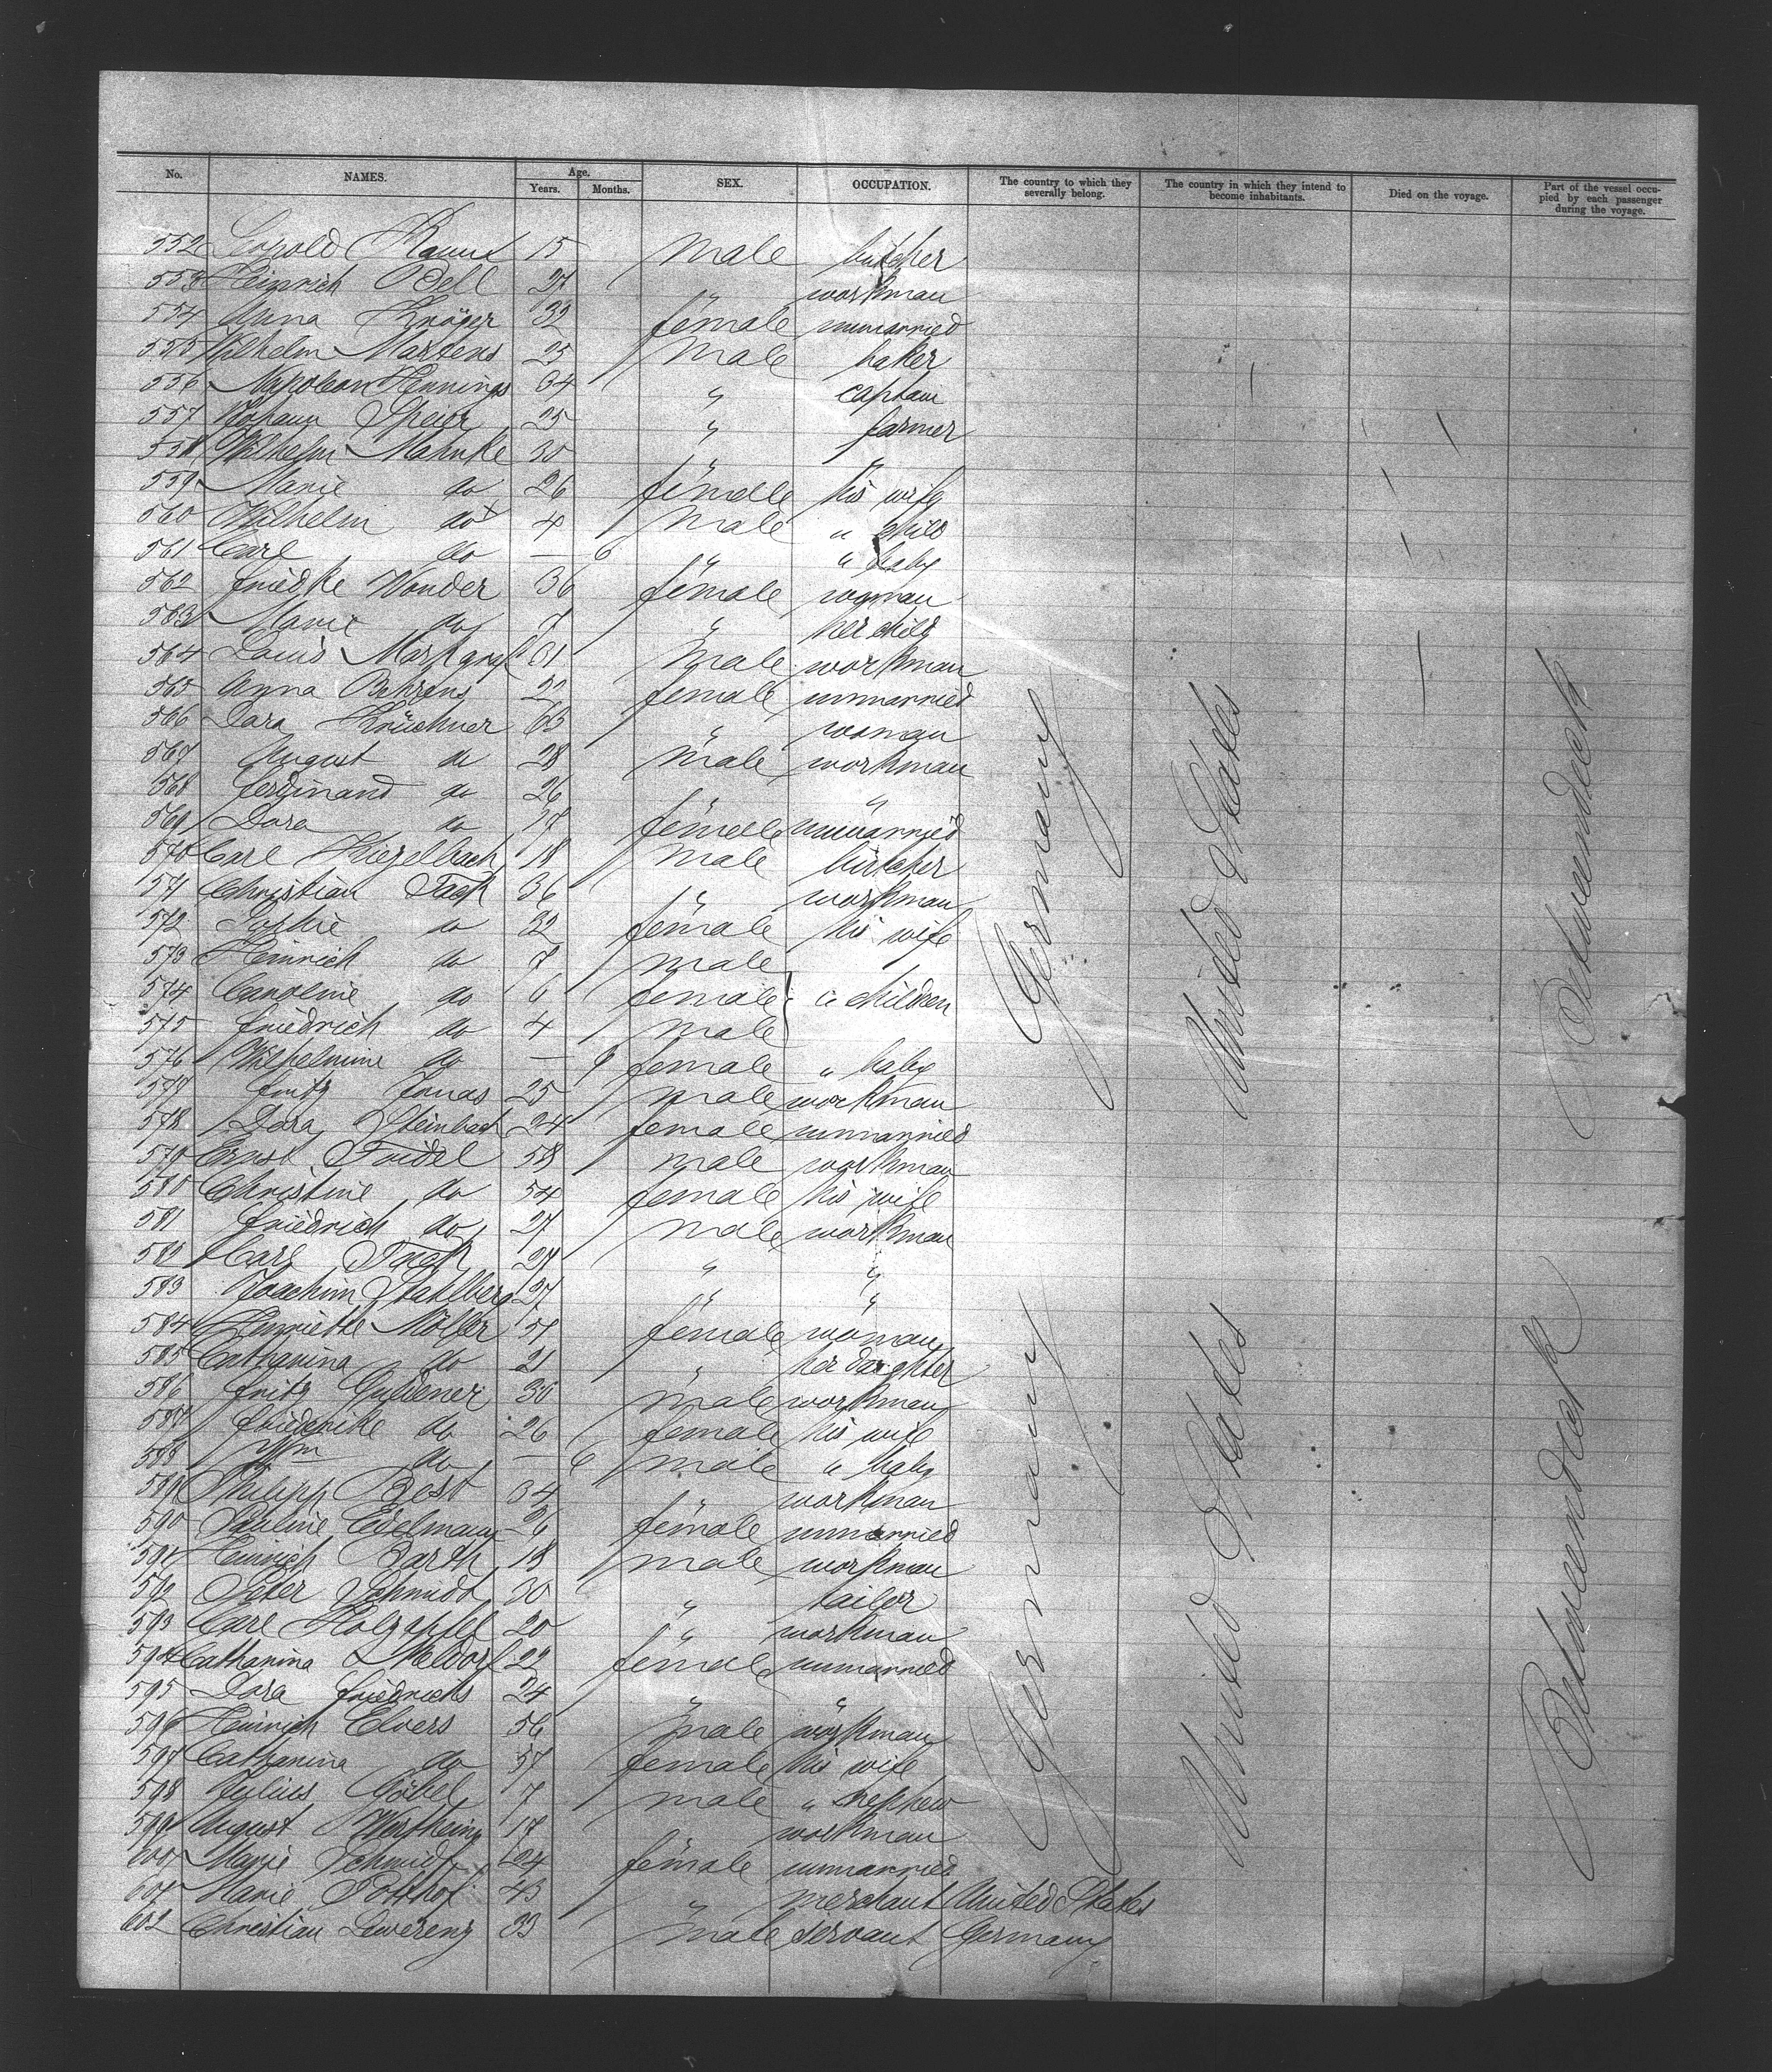 No. NAMES. Age. Years. Months. SEX. OCCUPATION. The country to which they severally belong. The country in which they intend to become inhabitants. Died on the voyage. Part of the vessel occupied by each passenger during the voyage.
552 Leopold 15 male butcher
553 Heinrich Odell 27 " workman
554 Anna Kröger 32 female unmarried
555 Wilhelm Martens 25 male baker
556 Napoleon Hennings 34 " captain
557 Johann Speier 25 " farmer
558 Wilhelm Mahnke 30 " "
559 Marie do 26 female his wife
560 Wilhelm do 4 male " child
561 Carl do — 6 " " baby
562 Friedke Wonder 36 female woman
563 Marie do 7 " her child
564 Louis Markgraf 31 male workman
565 Anna Behrens 22 female unmarried
566 Dora Krüchner 63 " woman
567 August do 28 male workman
568 Ferdinand do 26 " "
569 Dora do 17 female unmarried
570 Carl Kiezelbach 18 male butcher
571 Christian Tack 36 " workman
572 Sophie do 32 female his wife
573 Heinrich do 7 male
574 Caroline do 6 female " children
575 Friedrich do 4 male
576 Wilhelmine do — 9 female " baby
577 Fritz Jonas 25 male workman
578 Dora Steinbach 24 female unmarried
579 Ernst Friedel 58 male workman
580 Christine do 54 female his wife
581 Friedrich do 27 male workman
582 Carl 27 " "
583 Joachim Stahlberg 27 " "
584 Henriette Möller 51 female woman
585 Catharina do 21 " her daughter
586 Fritz Guldener 30 male workman
587 Friederike do 26 female his wife
588 Wm do — 6 male " baby
589 Philipp Best 34 " workman
590 Pauline Edelmann 26 female unmarried
591 Heinrich Barth 18 male workman
592 Peter Schmidt 30 " tailor
593 Carl Holzapfel 20 " workman
594 Catharina Meldorf 22 female unmarried
595 Dora Friedrichs 24 " "
596 Heinrich Elvers 56 male workman
597 Catharina do 57 female his wife
598 Julius Göbel 7 male " nephew
599 August Wertheim 17 " workman
600 Marie Schmidt 24 female unmarried
601 Marie Potthof 43 " merchant United States
602 Christian Lewerenz 33 male servant Germany
Germany
United States
Betweendeck
Germany
United States
Betweendeck